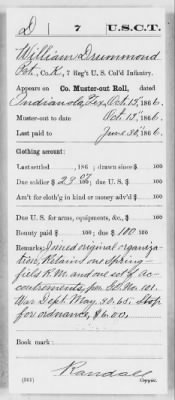 D 7 U.S.C.T.
William Drummond
Pvt., Co. K, 7 Reg't U. S. Col'd Infantry.
Appears on Co. Muster-out Roll, dated
Indianola, Tex, Oct. 13, 1866.
Muster-out to date Oct. 13, 1866.
Last paid to June 30, 1866.
Clothing account:
Last settled , 186 ; drawn since $ 100
Due soldier $ 29 100; due U. S. $ 100
Am't for cloth'g in kind or money adv'd $ 100
Due U. S. for arms, equipments, &c., $ 100
Bounty paid $ 100; due $ 100 100
Remarks: Joined original organiza-
tion, Retains one Spring-
field R. M. and one set of Ac-
coutrements, per G.O. No. 101.
War Dept. May, 30, 65. Stop
for ordnance, $6.00,
Book mark:
Randall
Copyist.